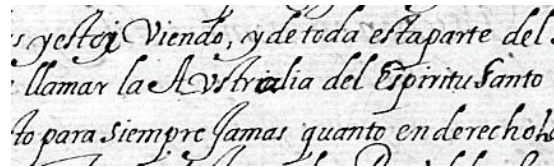 s y estoy Viendo, y de toda esta parte del
llamar la Avstrialia del Espiritu Santo
to para siempre Jamas quanto en derecho